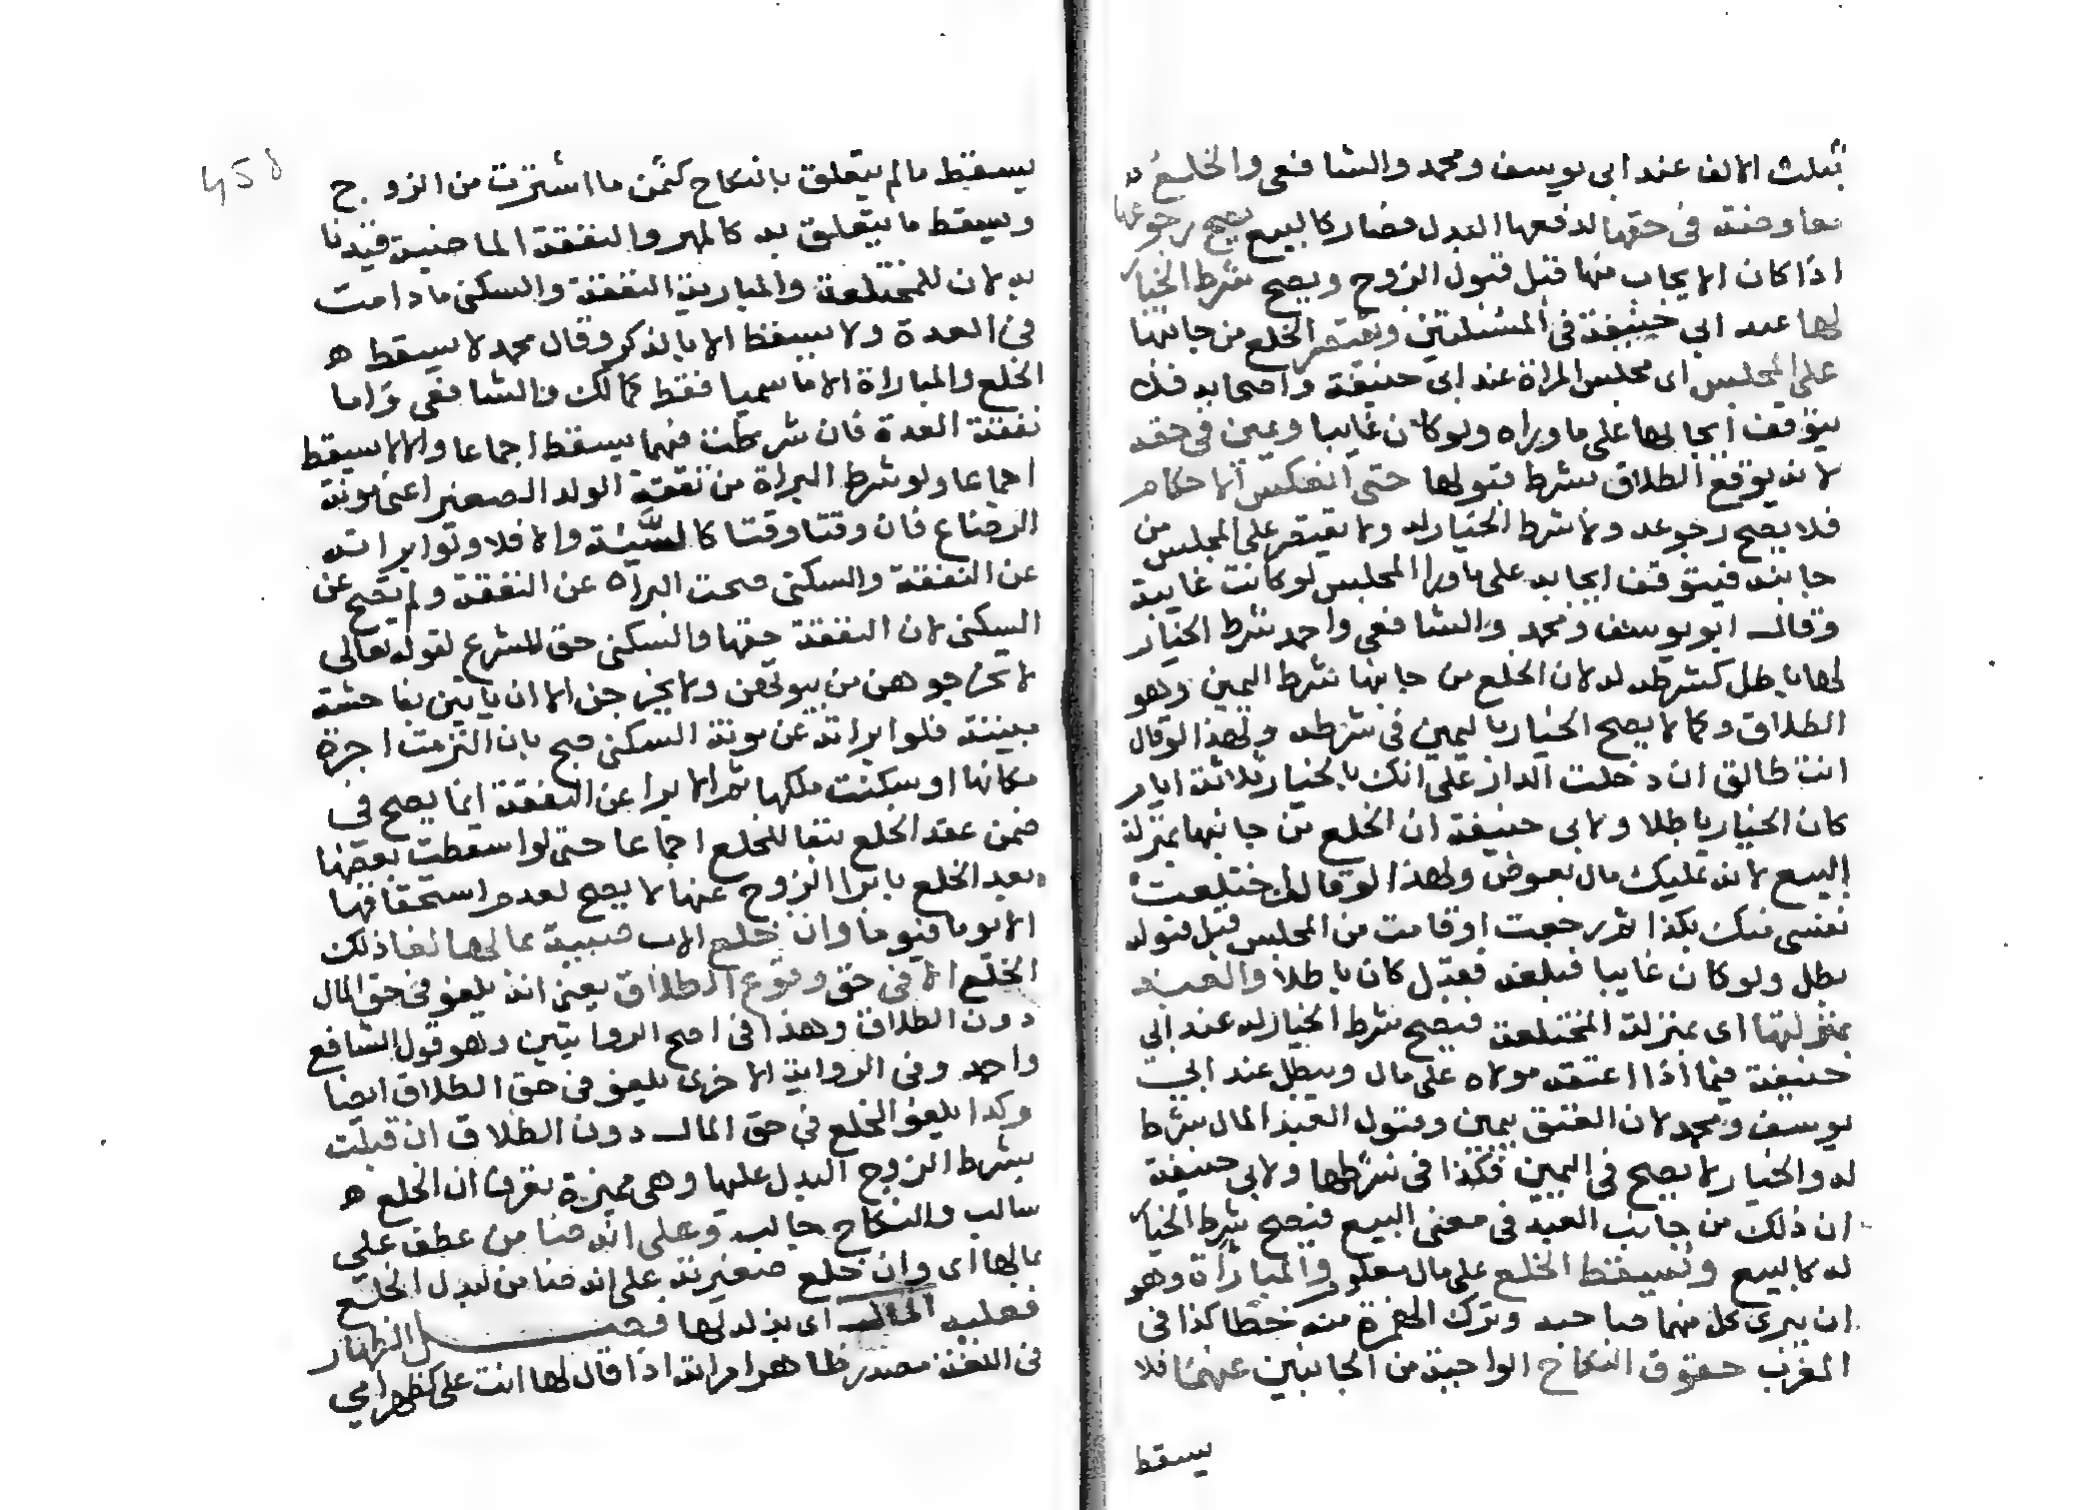 بثلث الالف عند ابى يوسف ومحمد والشافعى والخلع
معاوضة فى حقها لدفعها البدل فصار كالبيع يصح رجوعها
اذا كان الايجاب منها قبل قبول الزوج ويصح شرط الخيار
لها عند ابى حنيفة فى المسئلتين ويقتصر الخلع من جانبها
على المجلس اى مجلس المراة عند ابى حنيفة واصحابه فلا
يتوقف ايجابها على ما وراه ولو كان غايبا ويمين فى حقه
لانه يوقع الطلاق بشرط قبولها حتى انعكس الاحكام
فلا يصح رجوعه ولا شرط الخيار له ولا يقتصر على المجلس من
جانبه فيتوقف ايجابه على ماورا المجلس لو كانت غايبة
وقال ابو يوسف ومحمد والشافعى واحمد شرط الخيار
لها باطل كشرطه له لان الخلع من جانبها شرط اليمين وهو
الطلاق وكما لا يصح الخيار باليمين فى شرطه ولهذا لو قال
انت طالق ان دخلت الدار على انك بالخيار ثلاثة ايام
كان الخيار باطلا ولابى حنيفة ان الخلع من جانبها بمنزلة
البيع لانه تمليك مال بعوض ولهذا لو قالت اختلعت
نفسى منك بكذا ثم رجعت او قامت من المجلس قبل قبوله
بطل ولو كان غايبا فبلغه فقبل كان باطلا والعبد
بمنزلتها اى بمنزلة المختلعة فيصح شرط الخيار له عند ابى
حنيفة فيما اذا اعتقه مولاه على مال ويبطل عند ابى
يوسف ومحمد لان العتق يمين وقبول العبد المال شرط
له والخيار لا يصح فى اليمين فكذا فى شرطها ولابى حنيفة
ان ذلك من جانب العبد فى معنى البيع فيصح شرط الخيار
له كالبيع ويسقط الخلع على مال معلوم والمباراة وهو
ان يبرى كل منهما صاحبه وترك الهمزة منه خطا كذا فى
المغرب حقوق النكاح الواجبة من الجانبين عنهما فلا
يسقط
458
يسقط مالم يتعلق بالنكاح كثمن ما اشترت من الزوج
ويسقط ما يتعلق به كالمهر والنفقة الماضية قيدنا
به لان للمختلعة والمبارية النفقة والسكنى مادامت
فى العدة ولا يسقط الا بالذكر وقال محمد لا يسقط ه
الخلع والمباراة الا ما سميا فقط كمالك والشافعى واما
نفقة العدة فان شرطت فيهما يسقط اجماعا والا لا يسقط
اجماعا ولو شرط البراة من نفقة الولد الصغير اعنى مونة
الرضاع فان وقتا وقتا كالسنة والا فلا ولو ابراته
عن النفقة والسكنى صحت البراة عن النفقة ولم يصح عن
السكنى لان النفقة حقها والسكنى حق للشرع لقوله تعالى
لا تخرجوهن من بيوتهن ولا يخرجن الا ان ياتين بفاحشة
مبينة فلو ابراته عن مونة السكنى صح بان التزمت اجرة
مكانها او سكنت ملكها ثم الابرا عن النفقة انما يصح فى
ضمن عقد الخلع تبعا للخلع اجماعا حتى لو اسقطت بعضها
بعد الخلع بابرا الزوج عنها لا يصح لعدم استحقاقها
الا يوما فيوما وان خلع الاب صبية بمالها لغا ذلك
الخلع الا فى حق وقوع الطلاق يعنى انه يلغو فى حق المال
دون الطلاق وهذا فى اصح الروايتين وهو قول الشافع
واحمد وفى الرواية الاخرى يلغو فى حق الطلاق ايضا
وكذا يلغو الخلع فى حق المال دون الطلاق ان قبلت
بشرط الزوج البدل عليها وهى مميزة تعرف ان الخلع ه
سالب والنكاح جالب وعلى انه ضامن عطف على
بمالها اى وان خلع صغيرته على انه ضامن لبدل الخلع
فعليه المال اى بذله لها فصل الظهار
فى اللغة مصدر ظاهر امراته اذا قال لها انت على كظهر امى